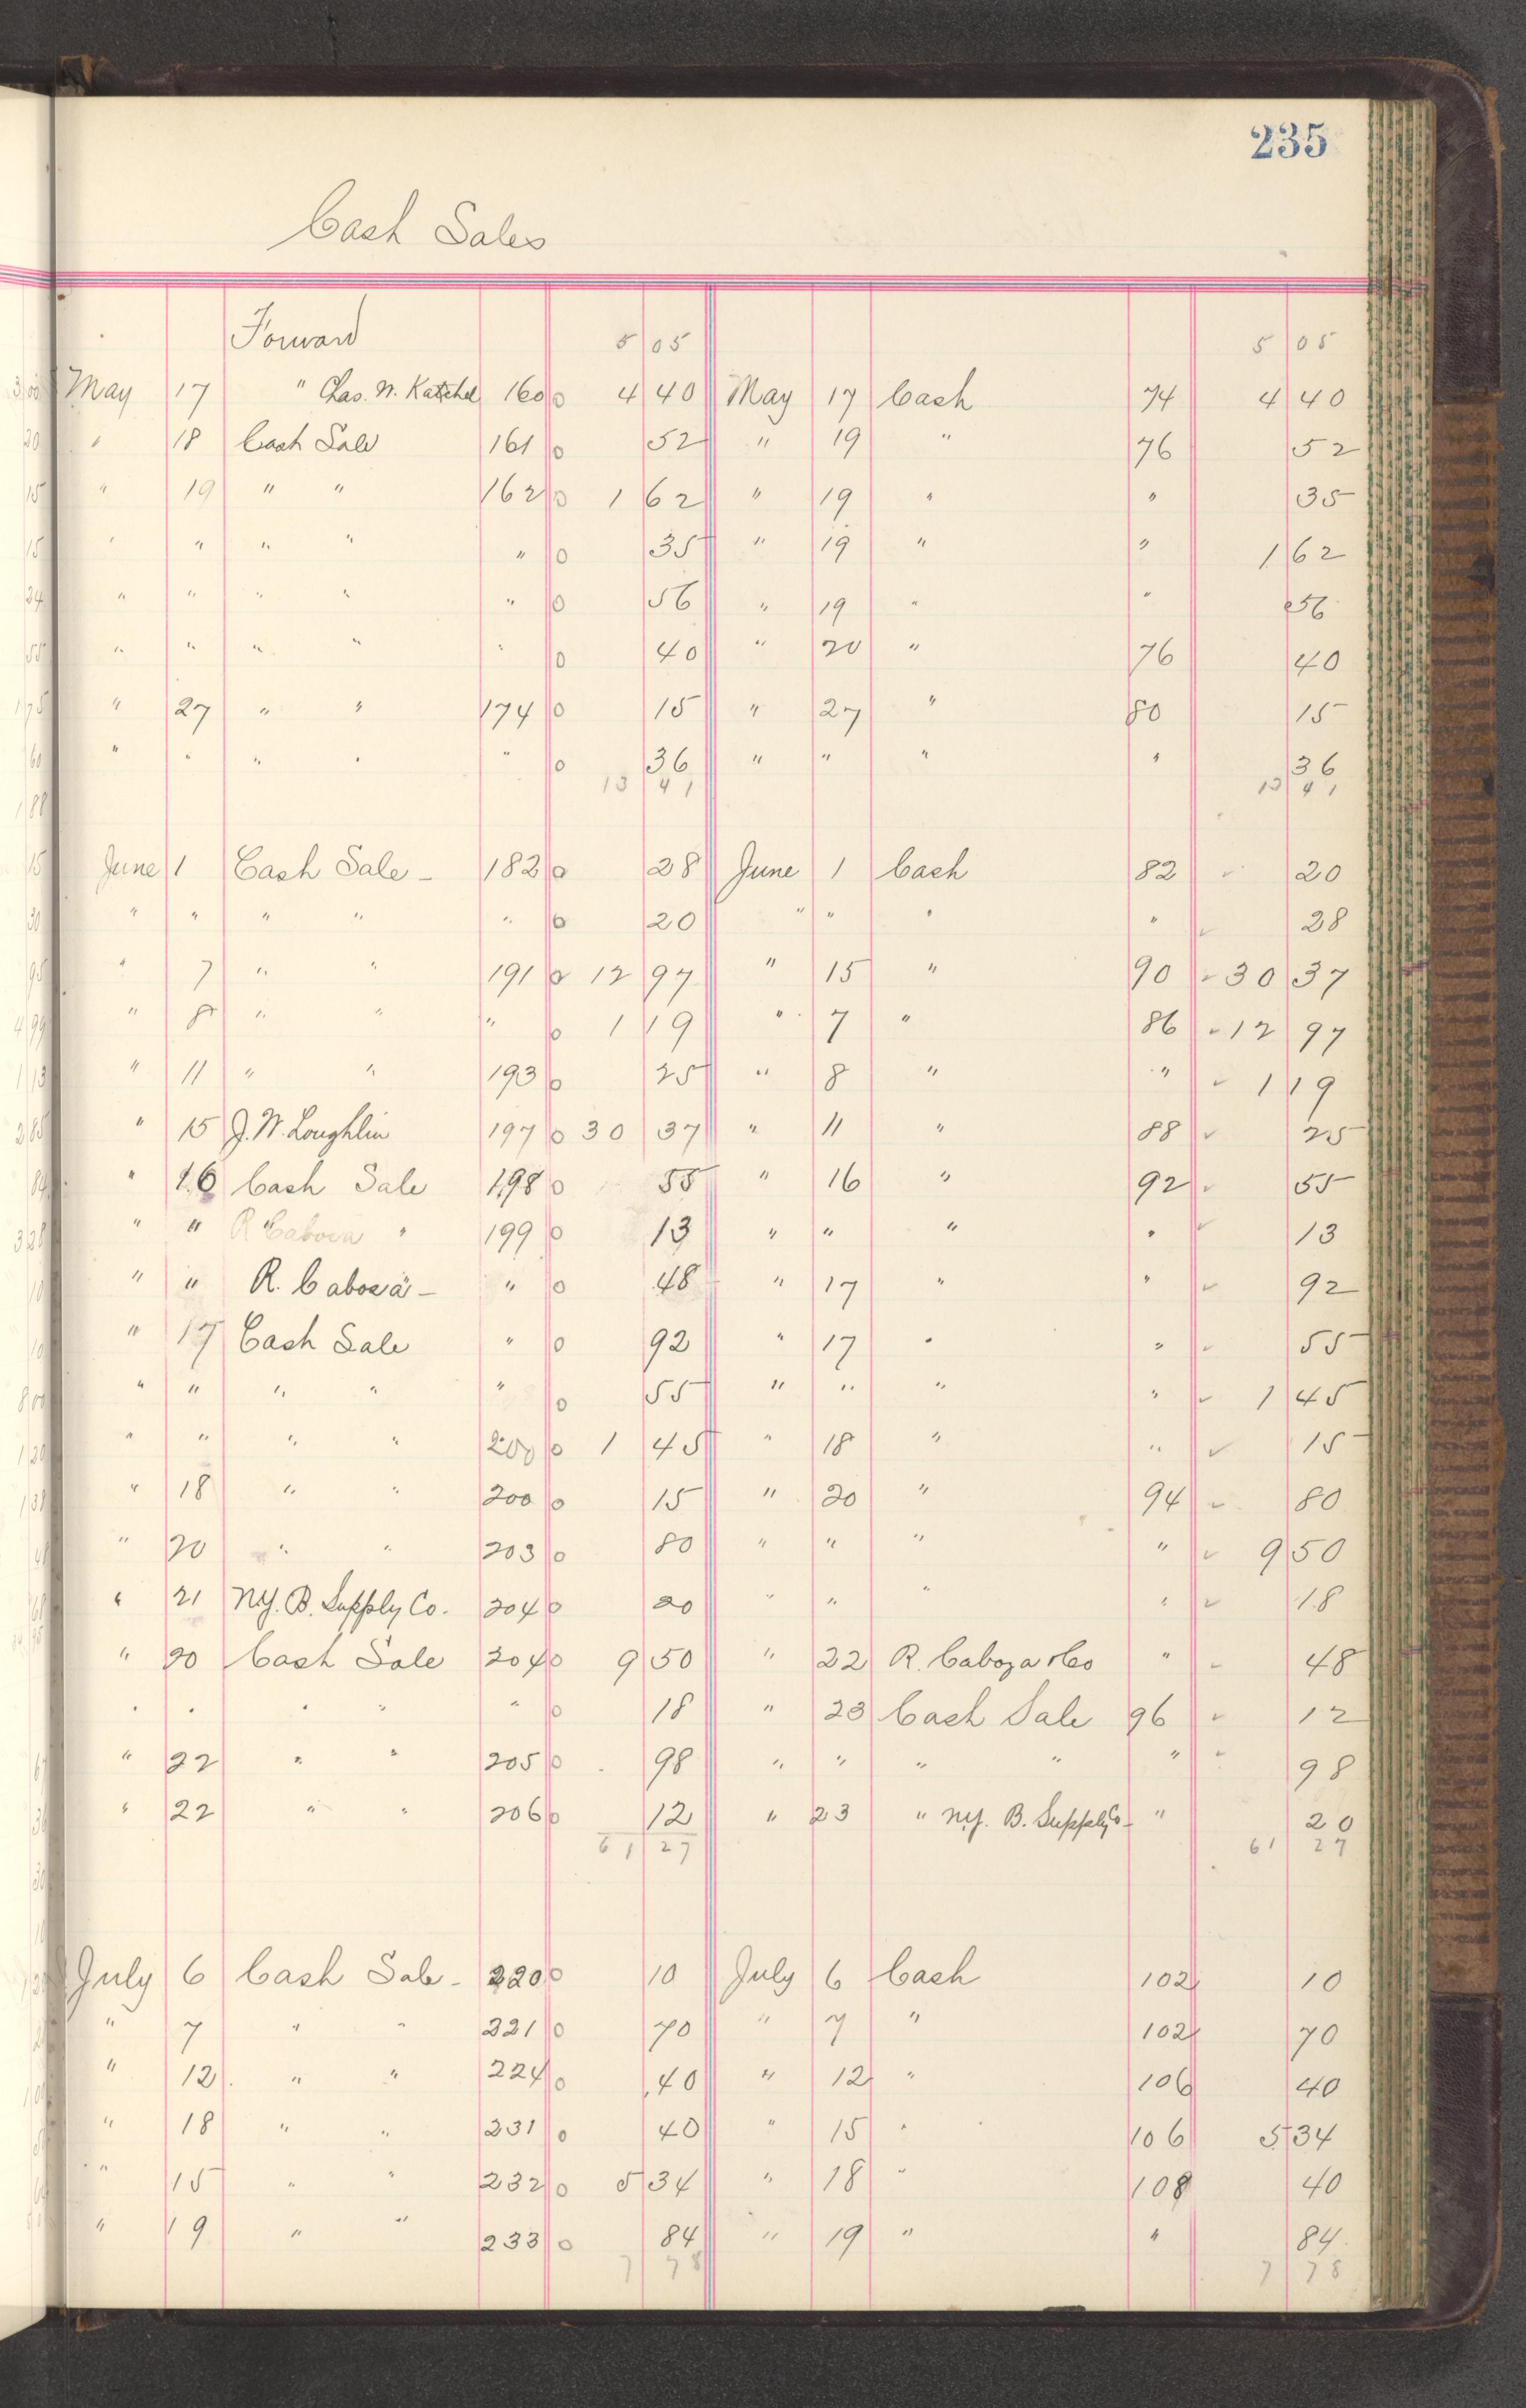 235
Cash Sales
Forward 5 05 5 05
May 17 " Chas. W. Katchel 160 0 4 40 May 17 Cash 74 4 40
" 18 Cash Sale 161 0 52 " 19 " 76 52
" 19 " " 162 0 1 62 " 19 " " 35
" " " " " 0 35 " 19 " " 1 62
" " " " " 0 56 " 19 " " 56
" " " " " 0 40 " 20 " 76 40
" 27 " " 174 0 15 " 27 " 80 15
" " " " " 0 36 " " " " 36
13 41 13 41
June 1 Cash Sale - 182 0 28 June 1 Cash 82 ✓ 20
" " " " " 0 20 " " " " ✓ 28
" 7 " " 191 0 12 97 " 15 " 90 ✓ 30 37
" 8 " " " 0 1 19 " 7 " 86 ✓ 12 97
" 11 " " 193 0 25 " 8 " " ✓ 1 19
" 15 J. W. Loughlin 197 0 30 37 " 11 " 88 ✓ 25
" 16 Cash Sale 198 0 55 " 16 " 92 ✓ 55
" " R Cabova " 199 0 13 " " " " ✓ 13
" " R. Cabosa - " 0 48 " 17 " " ✓ 92
" 17 Cash Sale " 0 92 " 17 " " ✓ 55
" " " " " 0 55 " " " " ✓ 1 45
" " " " 200 0 1 45 " 18 " " ✓ 15
" 18 " " 200 0 15 " 20 " 94 ✓ 80
" 20 " " 203 0 80 " " " " ✓ 9 50
" 21 N.Y. B. Supply Co. 204 0 20 " " " " ✓ 18
" 20 Cash Sale 204 0 9 50 " 22 R. Caboza & Co " ✓ 48
" " " " " 0 18 " 23 Cash Sale 96 ✓ 12
" 22 " " 205 0 98 " " " " " ✓ 98
" 22 " " 206 0 12 " 23 " N.Y. B. Supply Co - " 20
61 27 61 27
July 6 Cash Sale - 220 0 10 July 6 Cash 102 10
" 7 " " 221 0 70 " 7 " 102 70
" 12 " " 224 0 40 " 12 " 106 40
" 18 " " 231 0 40 " 15 " 106 5 34
" 15 " " 232 0 5 34 " 18 " 108 40
" 19 " " 233 0 84 " 19 " " 84
7 78 7 78